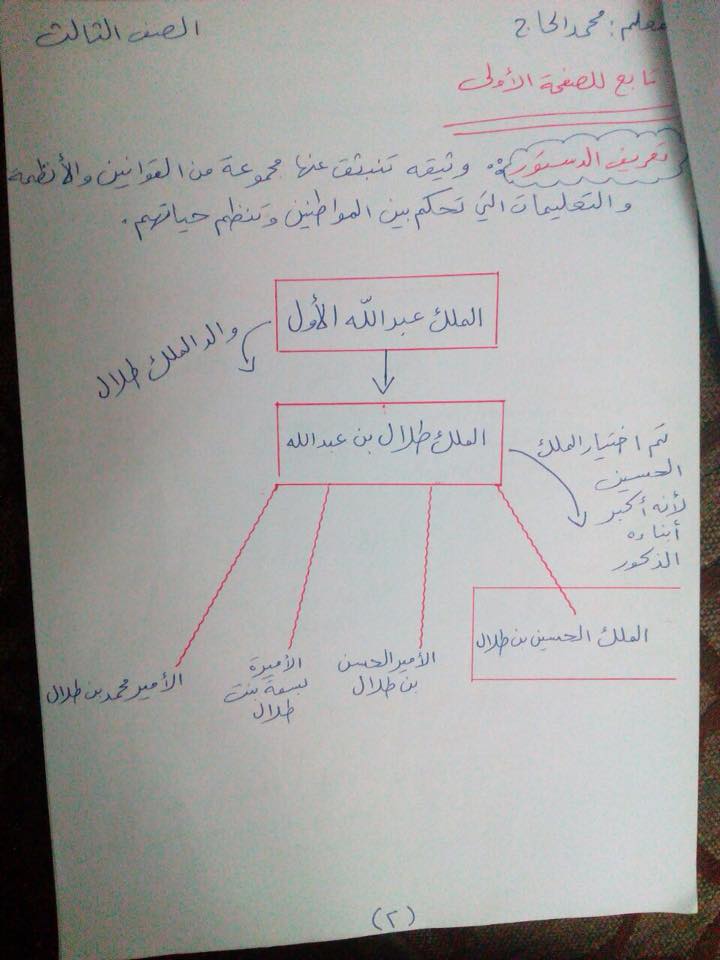 معلم: محمد الحاج
الصف الثالث
تابع للصفحة الأولى
تعريف الدستور: وثيقه تنبثق عنها مجموعة من القوانين والأنظمة
والتعليمات التي تحكم بين المواطنين وتنظم حياتهم.
الملك عبدالله الأول
والد الملك طلال
الملك طلال بن عبدالله
تم اختيار الملك
الحسين
لأنه أكبر
أبناءه
الذكور
الملك الحسين بن طلال
الأمير الحسن
بن طلال
الأميرة
بسمة بنت
طلال
الأمير محمد بن طلال
(٢)